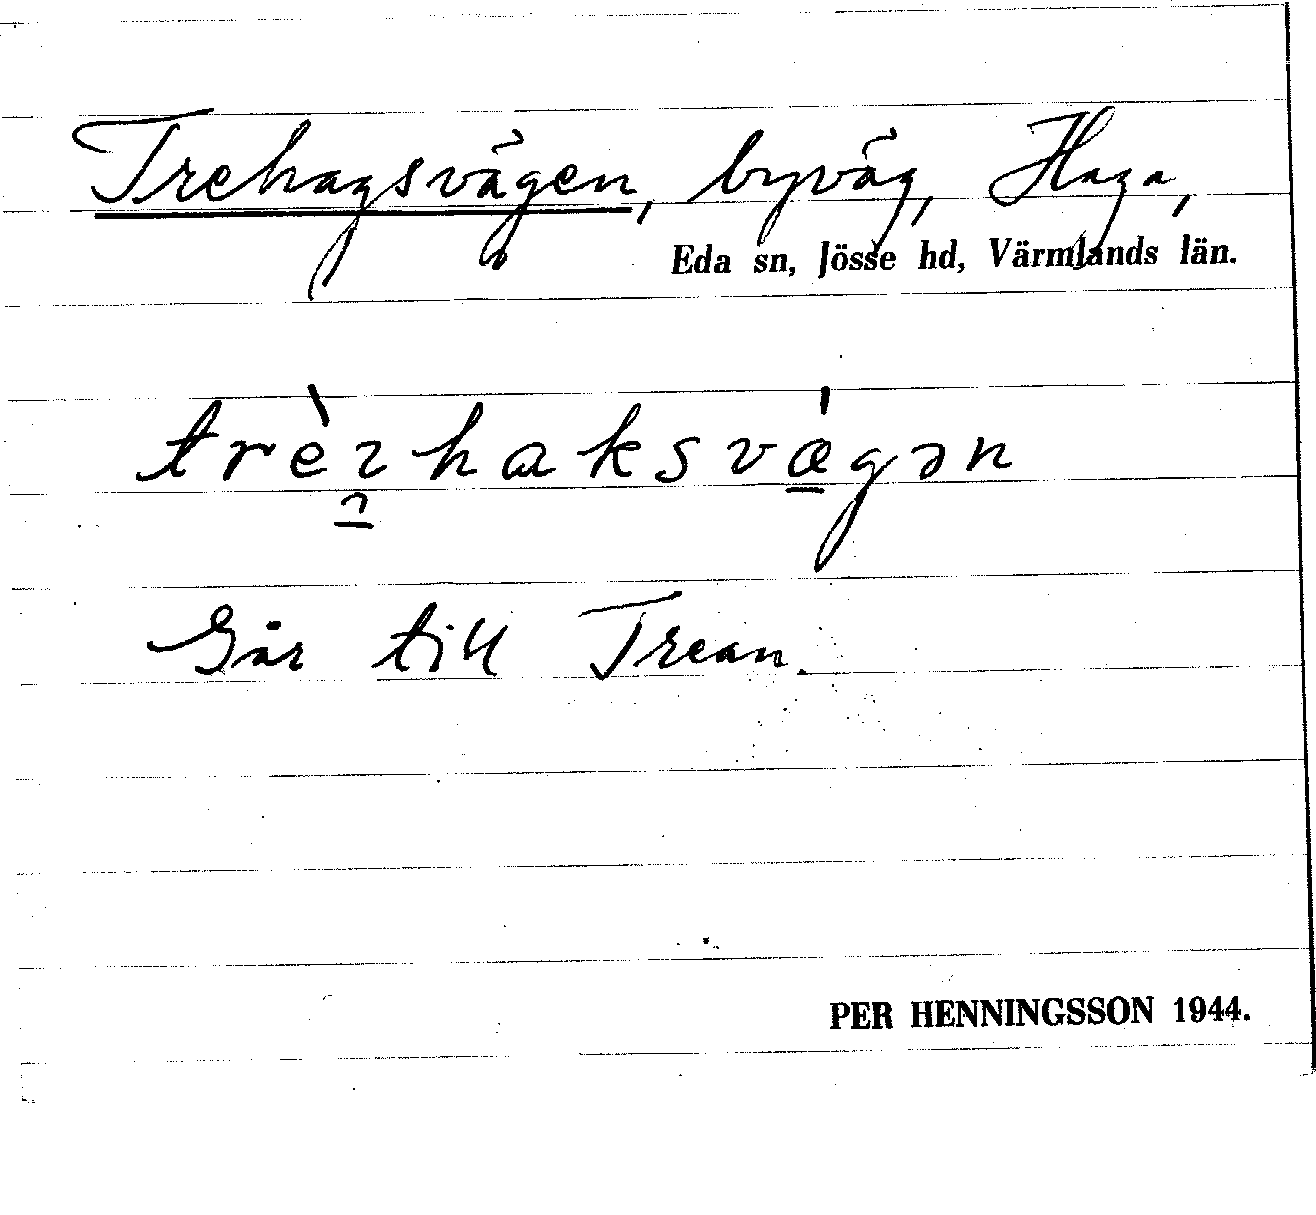 Trehagsvägen, byväg, Haga,
Eda sn, Jösse hd, Värmlands län.
Går till Trean.
PER HENNINGSSON 1944.